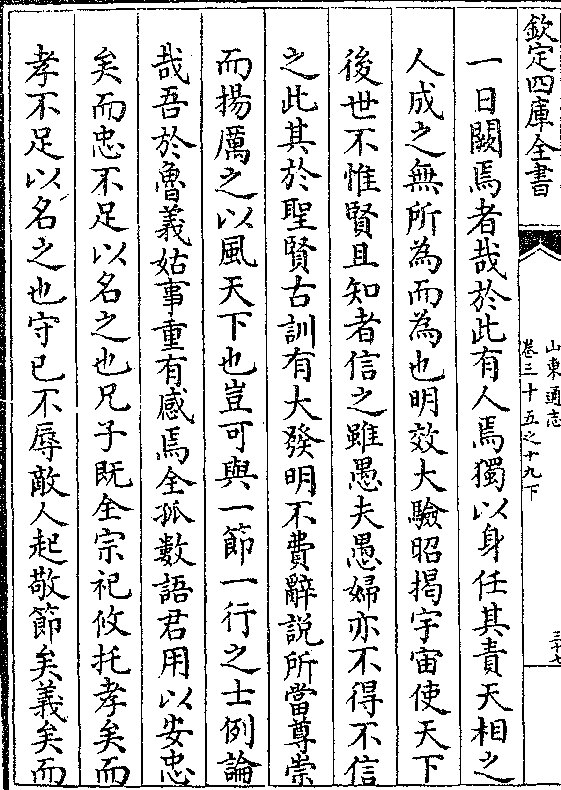 欽定四庫全書
山東通志
卷三十五之十九下
三十七
一日闕焉者哉於此有人焉獨以身任其責天相之
人成之無所為而為也明效大驗昭揭宇宙使天下
後世不惟賢且知者信之雖愚夫愚婦亦不得不信
之此其於聖賢古訓有大發明不費辭說所當尊崇
而揚厲之以風天下也豈可與一節一行之士例論
哉吾於魯義姑事重有感焉全孤數語君用以安忠
矣而忠不足以名之也兄子既全宗祀攸托孝矣而
孝不足以名之也守已不辱敵人起敬節矣義矣而